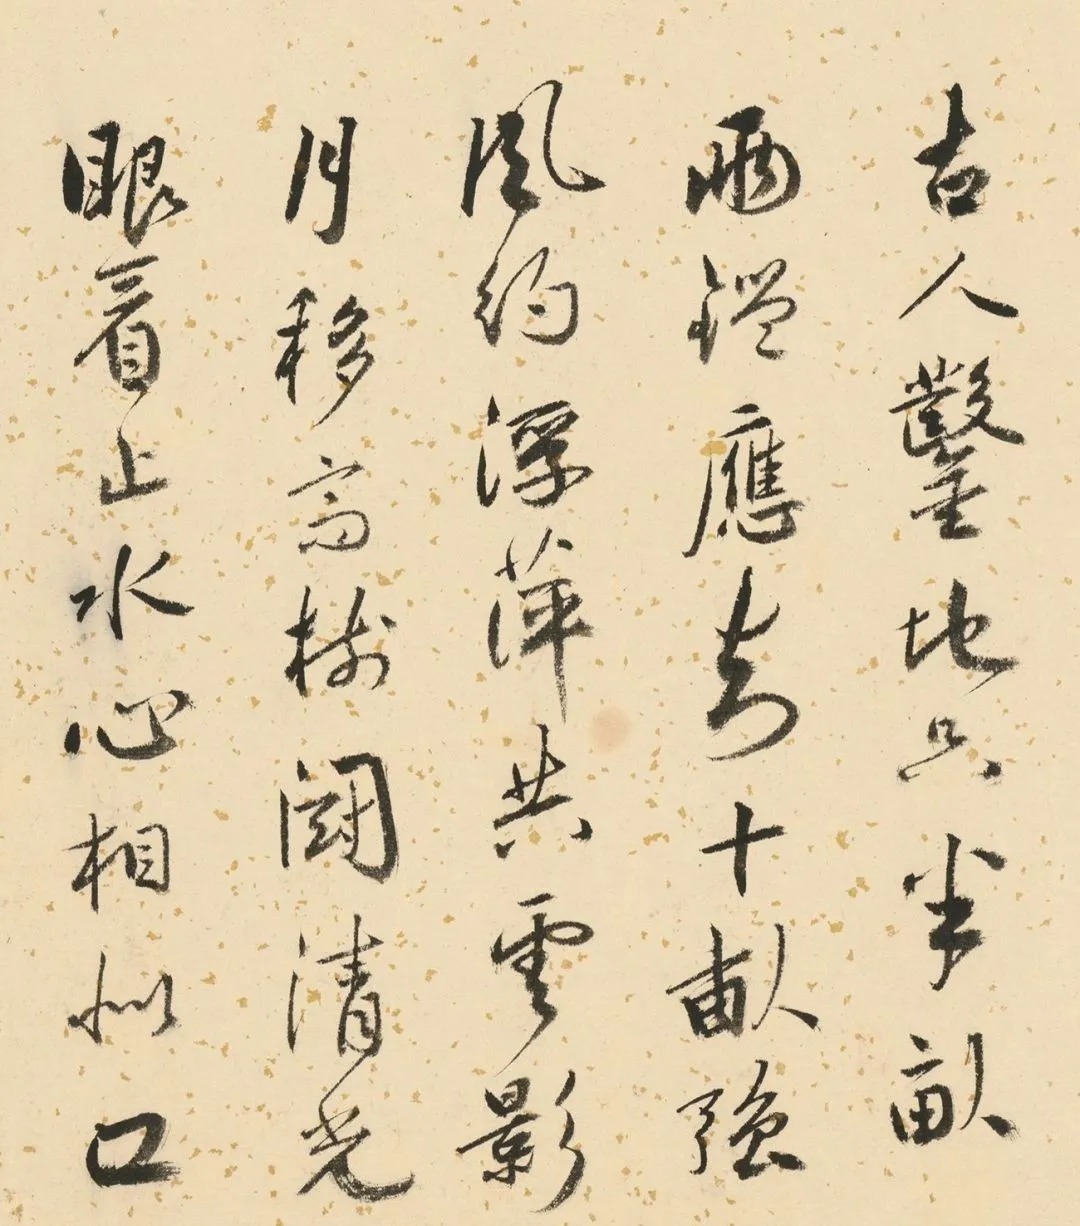 古人鑿地只半畝
兩鑑應十畝強
風約浮萍共雲影
月移高樹鬭清光
眼看止水心相似口